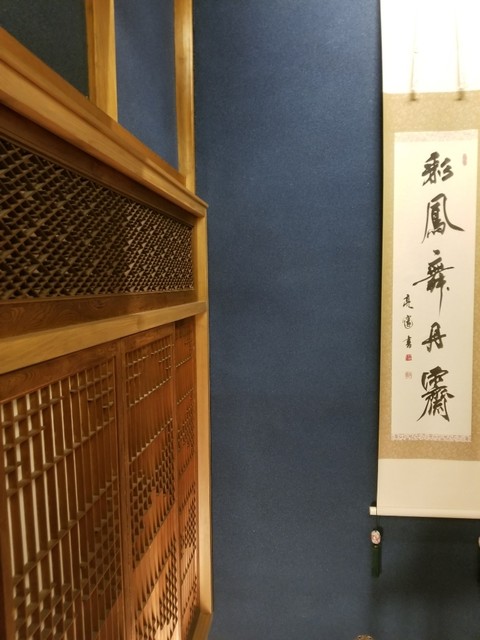 彩鳳舞丹霄
書